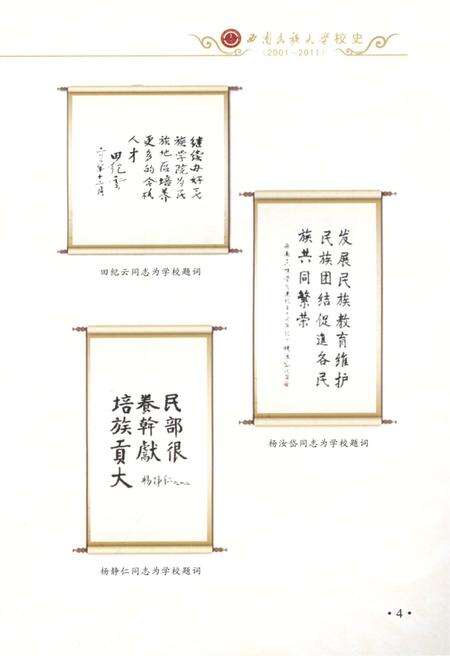 西南民族大学校史
(2001-2011)
继续办好民
族学院为民
族地区培养
更多的合格
人才
田纪云
田纪云同志为学校题词
发展民族教育维护
民族团结促進各民
族共同繁荣
杨汝岱同志为学校题词
民部很
養幹獻
培族貢大
杨静仁
杨静仁同志为学校题词
·4·